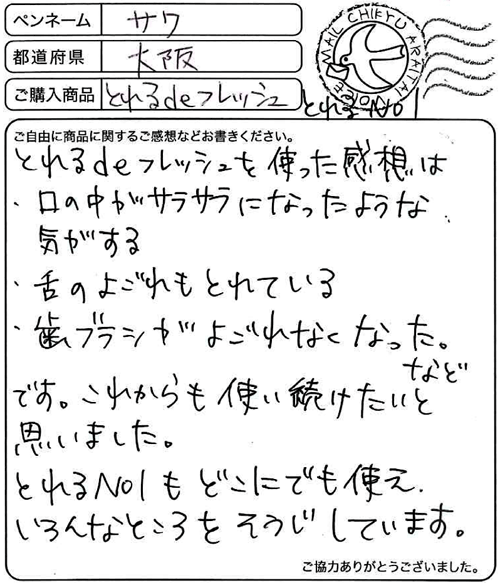 ペンネーム サワ
都道府県 大阪
ご購入商品 とれるdeフレッシュ とれるNo1
MAIL CHIEYU ARAITAI
ご自由に商品に関するご感想などお書きください。
とれるdeフレッシュを使った感想は
・口の中がサラサラになったような
気がする
・舌のよごれもとれている
・歯ブラシがよごれなくなった。
など
です。これからも使い続けたいと
思いました。
とれるNo1もどこにでも使え、
いろんなところをそうじしています。
ご協力ありがとうございました。